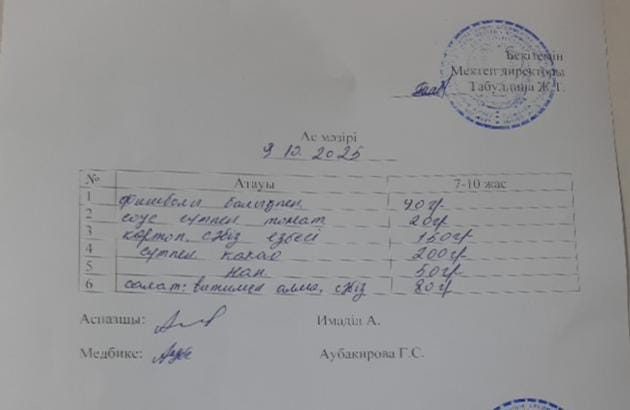 Бекітемін
Мектеп директоры
Табуллина Ж.Т.
Ас мәзірі
9 10. 2025
№ Атауы 7-10 жас
1 фишболы балықпен 90гр
2 соус сүтпен томат 20гр
3 картоп, сәбіз езбесі 150гр
4 сүтпен какао 200гр
5 нан 50гр
6 салат: витимин алма, сәбіз 80гр
Аспазшы: Имаділ А.
Медбике: Аубакирова Г.С.